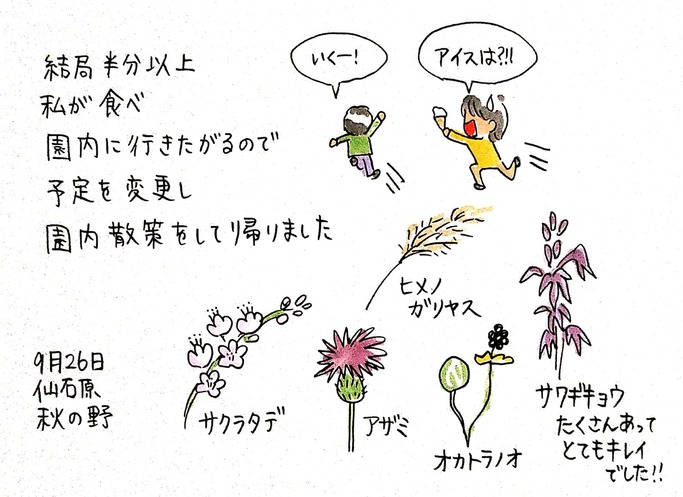 結局半分以上
私が食べ
園内に行きたがるので
予定を変更し
園内散策をして帰りました
いくー!
アイスは?!!
ヒメノ
ガリヤス
サクラタデ
アザミ
オカトラノオ
サワギキョウ
たくさんあって
とてもキレイ
でした!!
9月26日
仙石原
秋の野